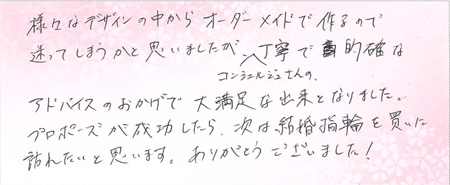 様々なデザインの中からオーダーメイドで作るので
迷ってしまうかと思いましたが、丁寧で的確な
コンシェルジュさんの、
アドバイスのおかげで大満足な出来となりました。
プロポーズが成功したら、次は結婚指輪を買いに
訪れたいと思います。ありがとうございました！